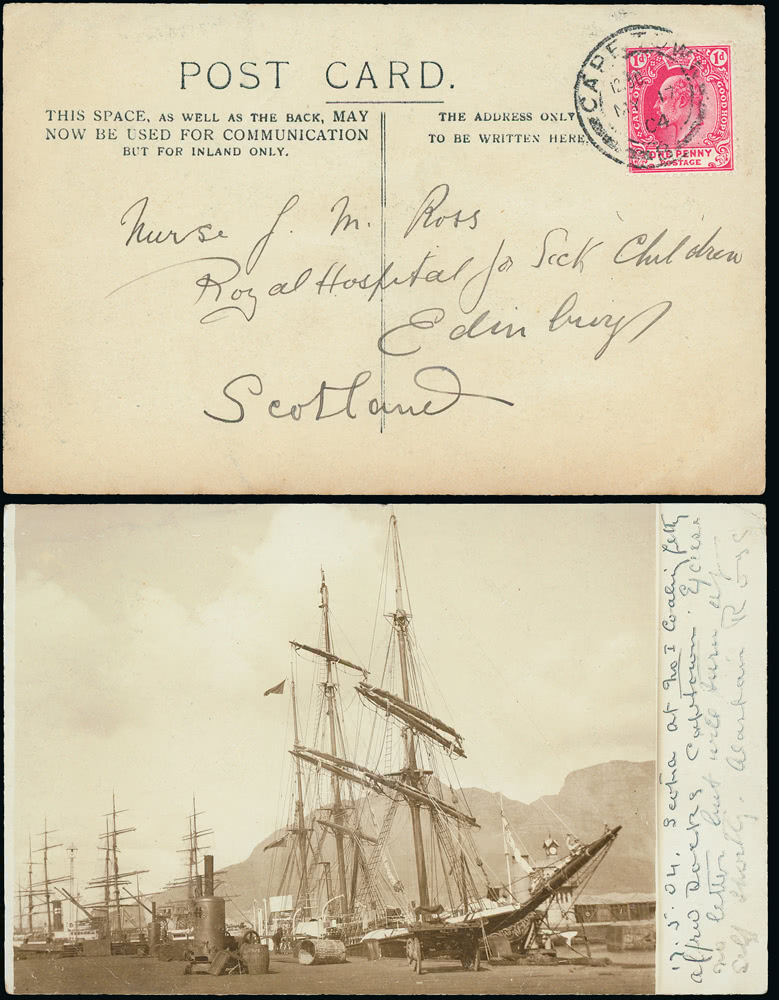 POST CARD.
THIS SPACE, AS WELL AS THE BACK, MAY
NOW BE USED FOR COMMUNICATION
BUT FOR INLAND ONLY.
THE ADDRESS ONLY
TO BE WRITTEN HERE.
CAPE TOWN
12
MY 17
04
1d 1d
CAPE OF GOOD HOPE
ONE PENNY
POSTAGE
Nurse J. M. Ross
Royal Hospital for Sick Children
Edinburgh
Scotland
17.5.04. Scotia at No I Coaling Jetty
Alfred Docks Capetown. Excuse
no letter but will turn up
self shortly. Alastair Ross